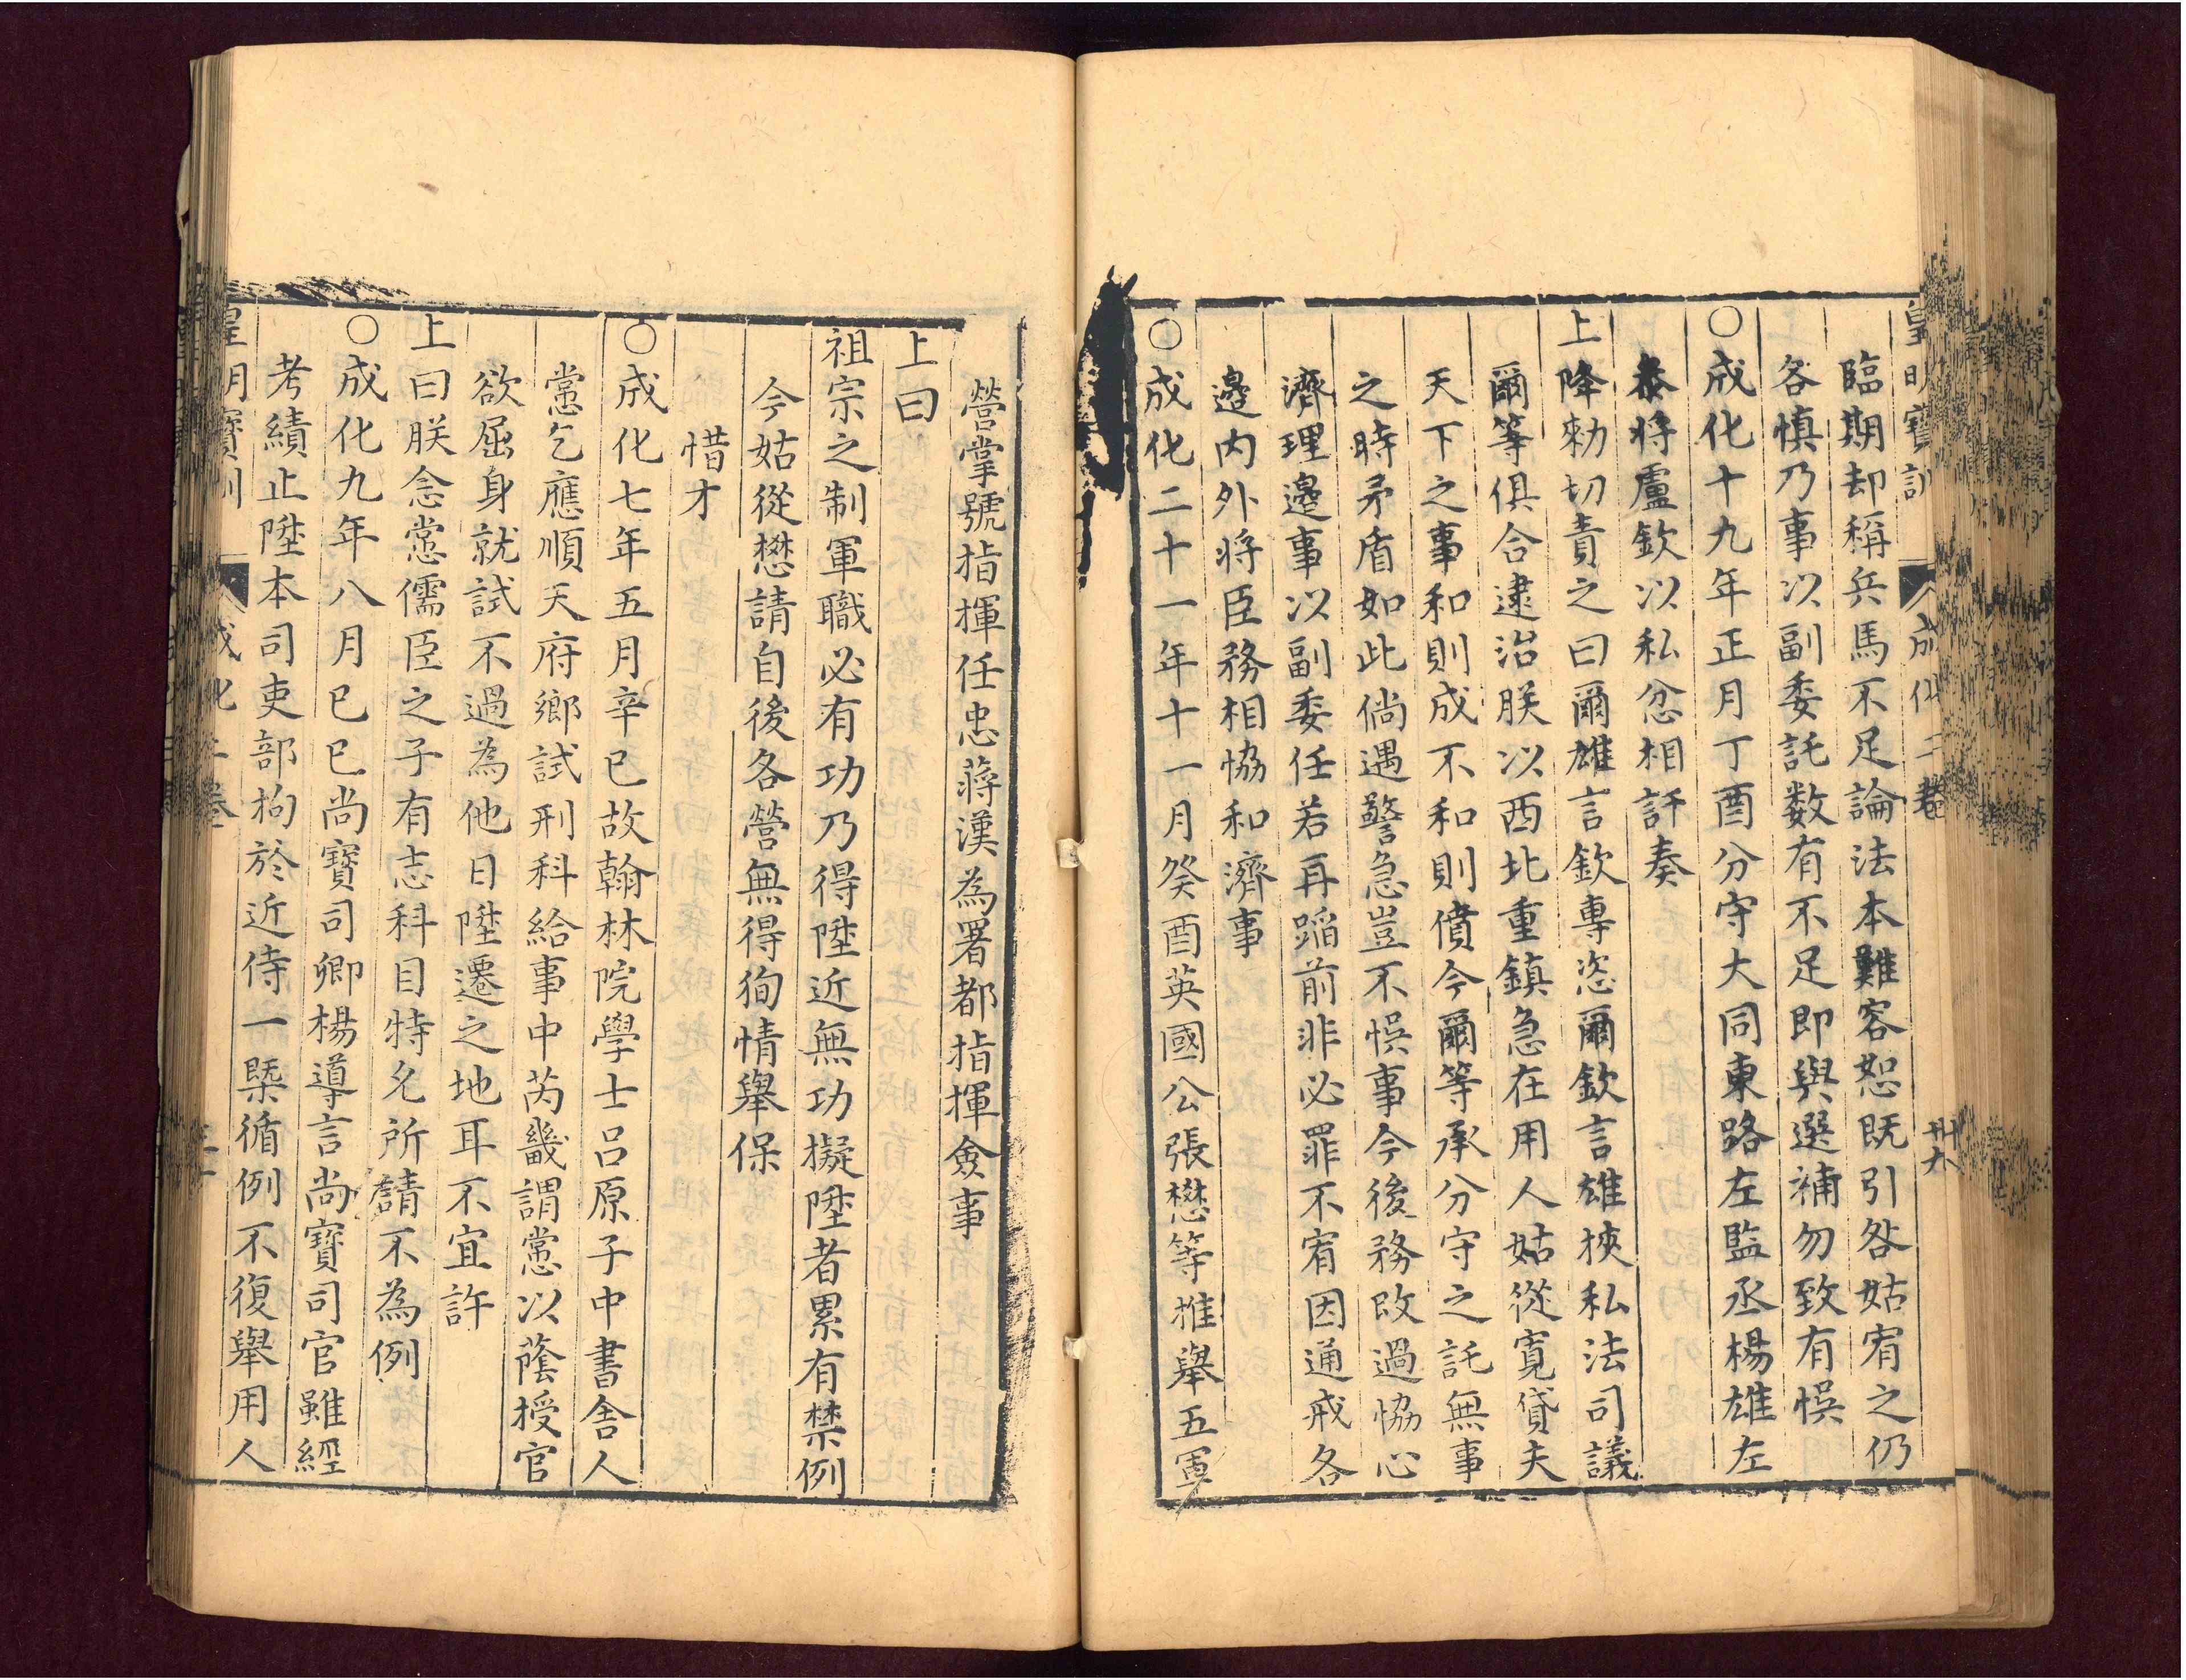 皇明寶訓 成化二卷 卅六
臨期却稱兵馬不足論法本難容恕既引咎姑宥之仍
各慎乃事以副委託数有不足即與選補勿致有悞
○成化十九年正月丁酉分守大同東路左監丞楊雄左
叅将盧欽以私忿相訐奏
上降勑切責之曰爾雄言欽專恣爾欽言雄挾私法司議
爾等俱合逮治朕以西北重鎮急在用人姑從寬貸夫
天下之事和則成不和則僨今爾等承分守之託無事
之時矛盾如此倘遇警急豈不悞事今後務改過恊心
濟理邉事以副委任若再蹈前非必罪不宥因通戒各
邉内外将臣務相恊和濟事
○成化二十一年十一月癸酉英國公張懋等推舉五軍
營掌號指揮任忠蔣漢為署都指揮僉事
上曰
祖宗之制軍職必有功乃得陞近無功擬陞者累有禁例
今姑從懋請自後各營無得狥情舉保
惜才
○成化七年五月辛巳故翰林院學士吕原子中書舎人
㦂乞應順天府鄉試刑科給事中芮畿謂㦂以蔭授官
欲屈身就試不過為他日陞遷之地耳不宜許
上曰朕念㦂儒臣之子有志科目特允所請不為例
○成化九年八月己巳尚寶司卿楊導言尚寶司官雖經
考績止陞本司吏部拘於近侍一槩循例不復舉用人
皇明寶訓 成化二卷